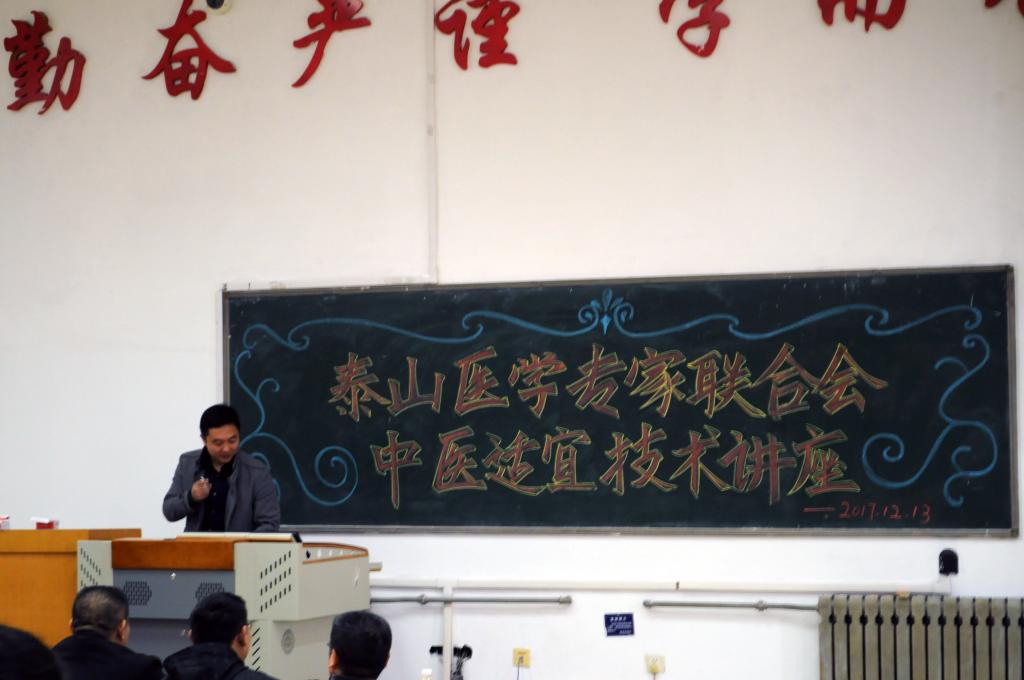 勤奋严谨 学
泰山医学专家联合会
中医适宜技术讲座
—2017.12.13